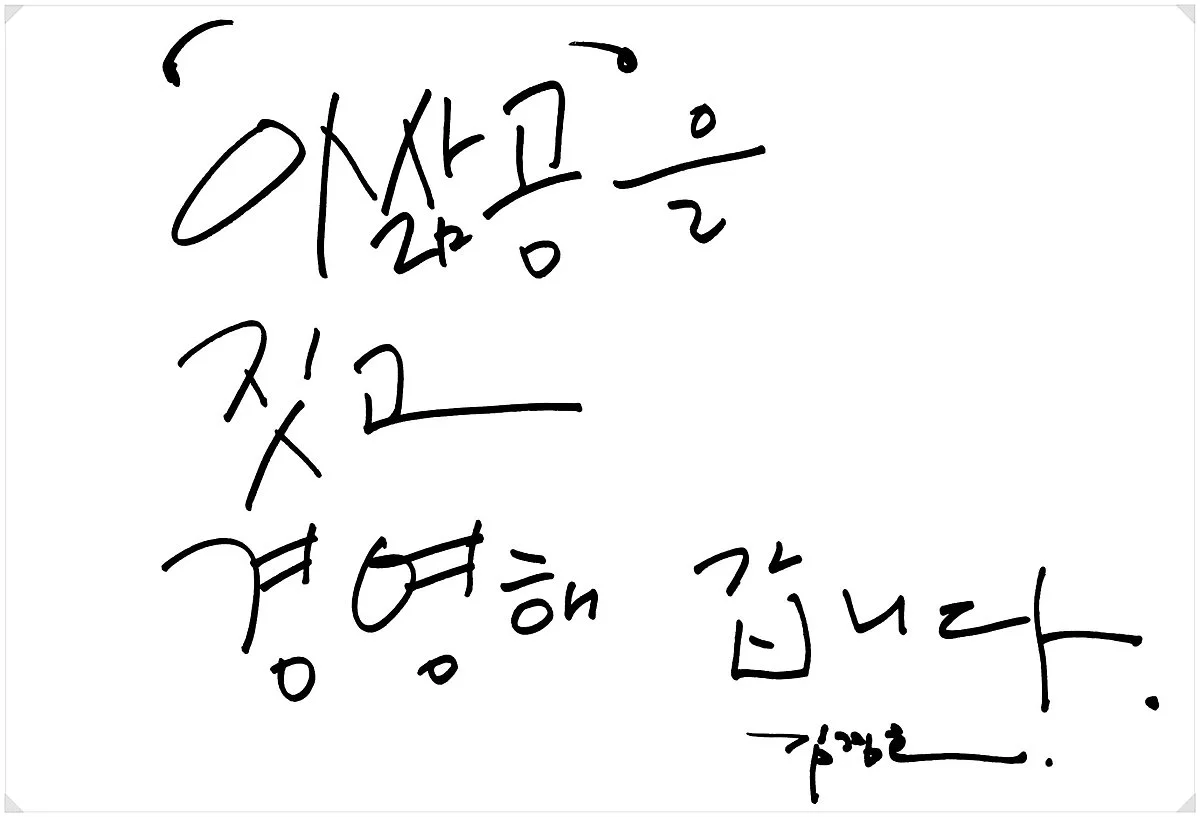 “이삶공”을
짓고
경영해 갑니다.